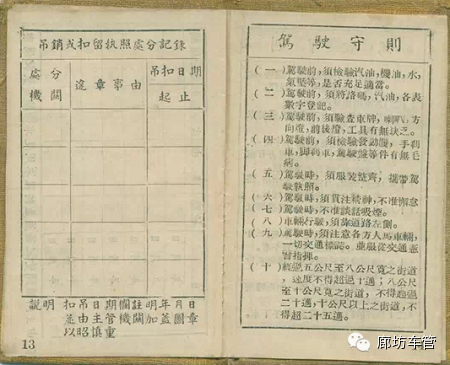 吊銷或扣留執照處分記錄
處分機關
違章事由
吊扣日期
起止
說明 扣吊日期欄註明年月日
並由主管機關加蓋圖章
以昭慎重
13
駕駛守則
(一)駕駛前,須檢驗汽油,機油,水,
氣壓等,是否充足適當。
(二)駕駛前,須將路碼,汽油,各表
數字登記。
(三)駕駛前,須驗查車牌,喇叭,方
向燈,前後燈,工具有無缺乏。
(四)駕駛前,須檢驗發動機,手剎
車,脚剎車,駕駛盤等件有無毛
病。
(五)駕駛時,須服裝整齊,攜帶駕
駛執照。
(六)駕駛時,須貫注精神,不准懈怠
(七)駕駛時,不准談話吸煙。
(八)車輛行駛,須靠道路左側。
(九)駕駛時,須注意各方人馬車輛,
一切交通標誌。並服從交通警
察指揮。
(十)經過五公尺至八公尺寬之街道
,速度不得超過十邁;八公尺
至十公尺寬之街道,不得超過
二十邁,十公尺以上之街道,不
得超二十五邁。
廊坊车管